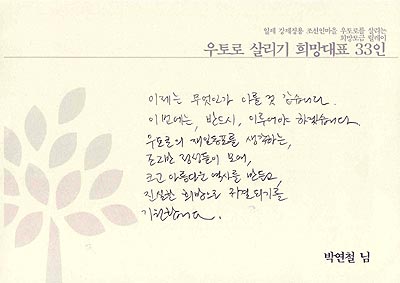 일제 강제징용 조선인마을 우토로를 살리는
희망모금 릴레이
우토로 살리기 희망대표 33인
이제는 무엇인가 다를 것 같습니다.
이번에는, 반드시, 이루어야 하겠습니다.
우토로의 재일동포를 생각하는,
조그만 정성들이 모여,
크고 아름다운 역사를 만들고,
진실한 희망으로 귀결되기를
기원합니다.
박연철 님